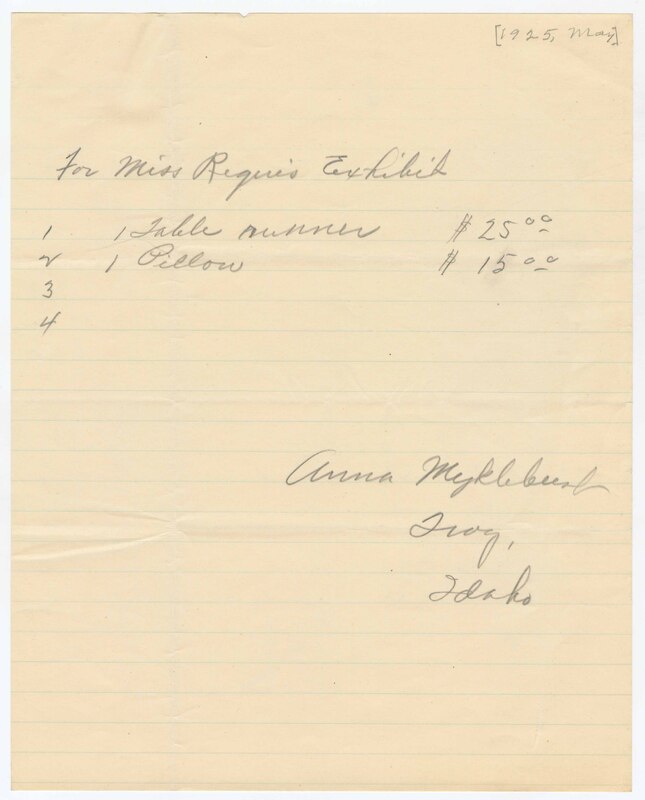 [1925, May]
For Miss Requis Exhibit
1 1 Table runner $ 25 00
2 1 Pillow $ 15 00
3
4
Anna Myklebust
Troy,
Idaho